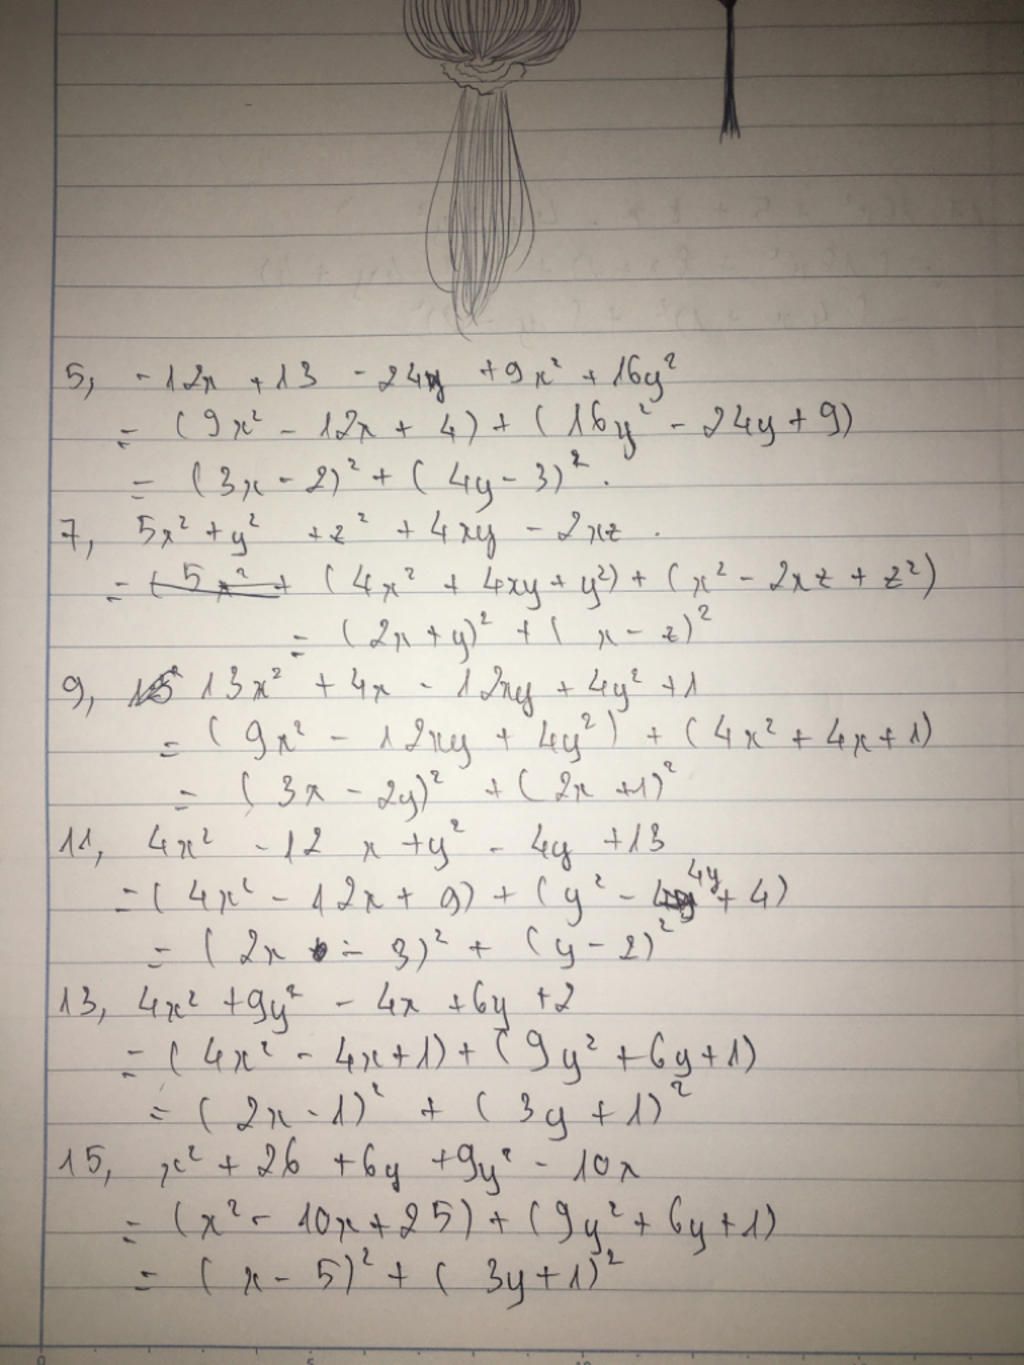 5, -12x + 13 - 24y + 9x² + 16y²
= (9x² - 12x + 4) + (16y² - 24y + 9)
= (3x - 2)² + (4y - 3)².
7, 5x² + y² + z² + 4xy - 2xz.
= (5x² + (4x² + 4xy + y²) + (x² - 2xz + z²)
= (2x + y)² + (x - z)²
9, 13x² + 4x - 12xy + 4y² + 1
= (9x² - 12xy + 4y²) + (4x² + 4x + 1)
= (3x - 2y)² + (2x + 1)²
11, 4x² - 12x + y² - 4y + 13
= (4x² - 12x + 9) + (y² - 4y + 4)
= (2x - 3)² + (y - 2)²
13, 4x² + 9y² - 4x + 6y + 2
= (4x² - 4x + 1) + (9y² + 6y + 1)
= (2x - 1)² + (3y + 1)²
15, x² + 26 + 6y + 9y² - 10x
= (x² - 10x + 25) + (9y² + 6y + 1)
= (x - 5)² + (3y + 1)²
0 5 10